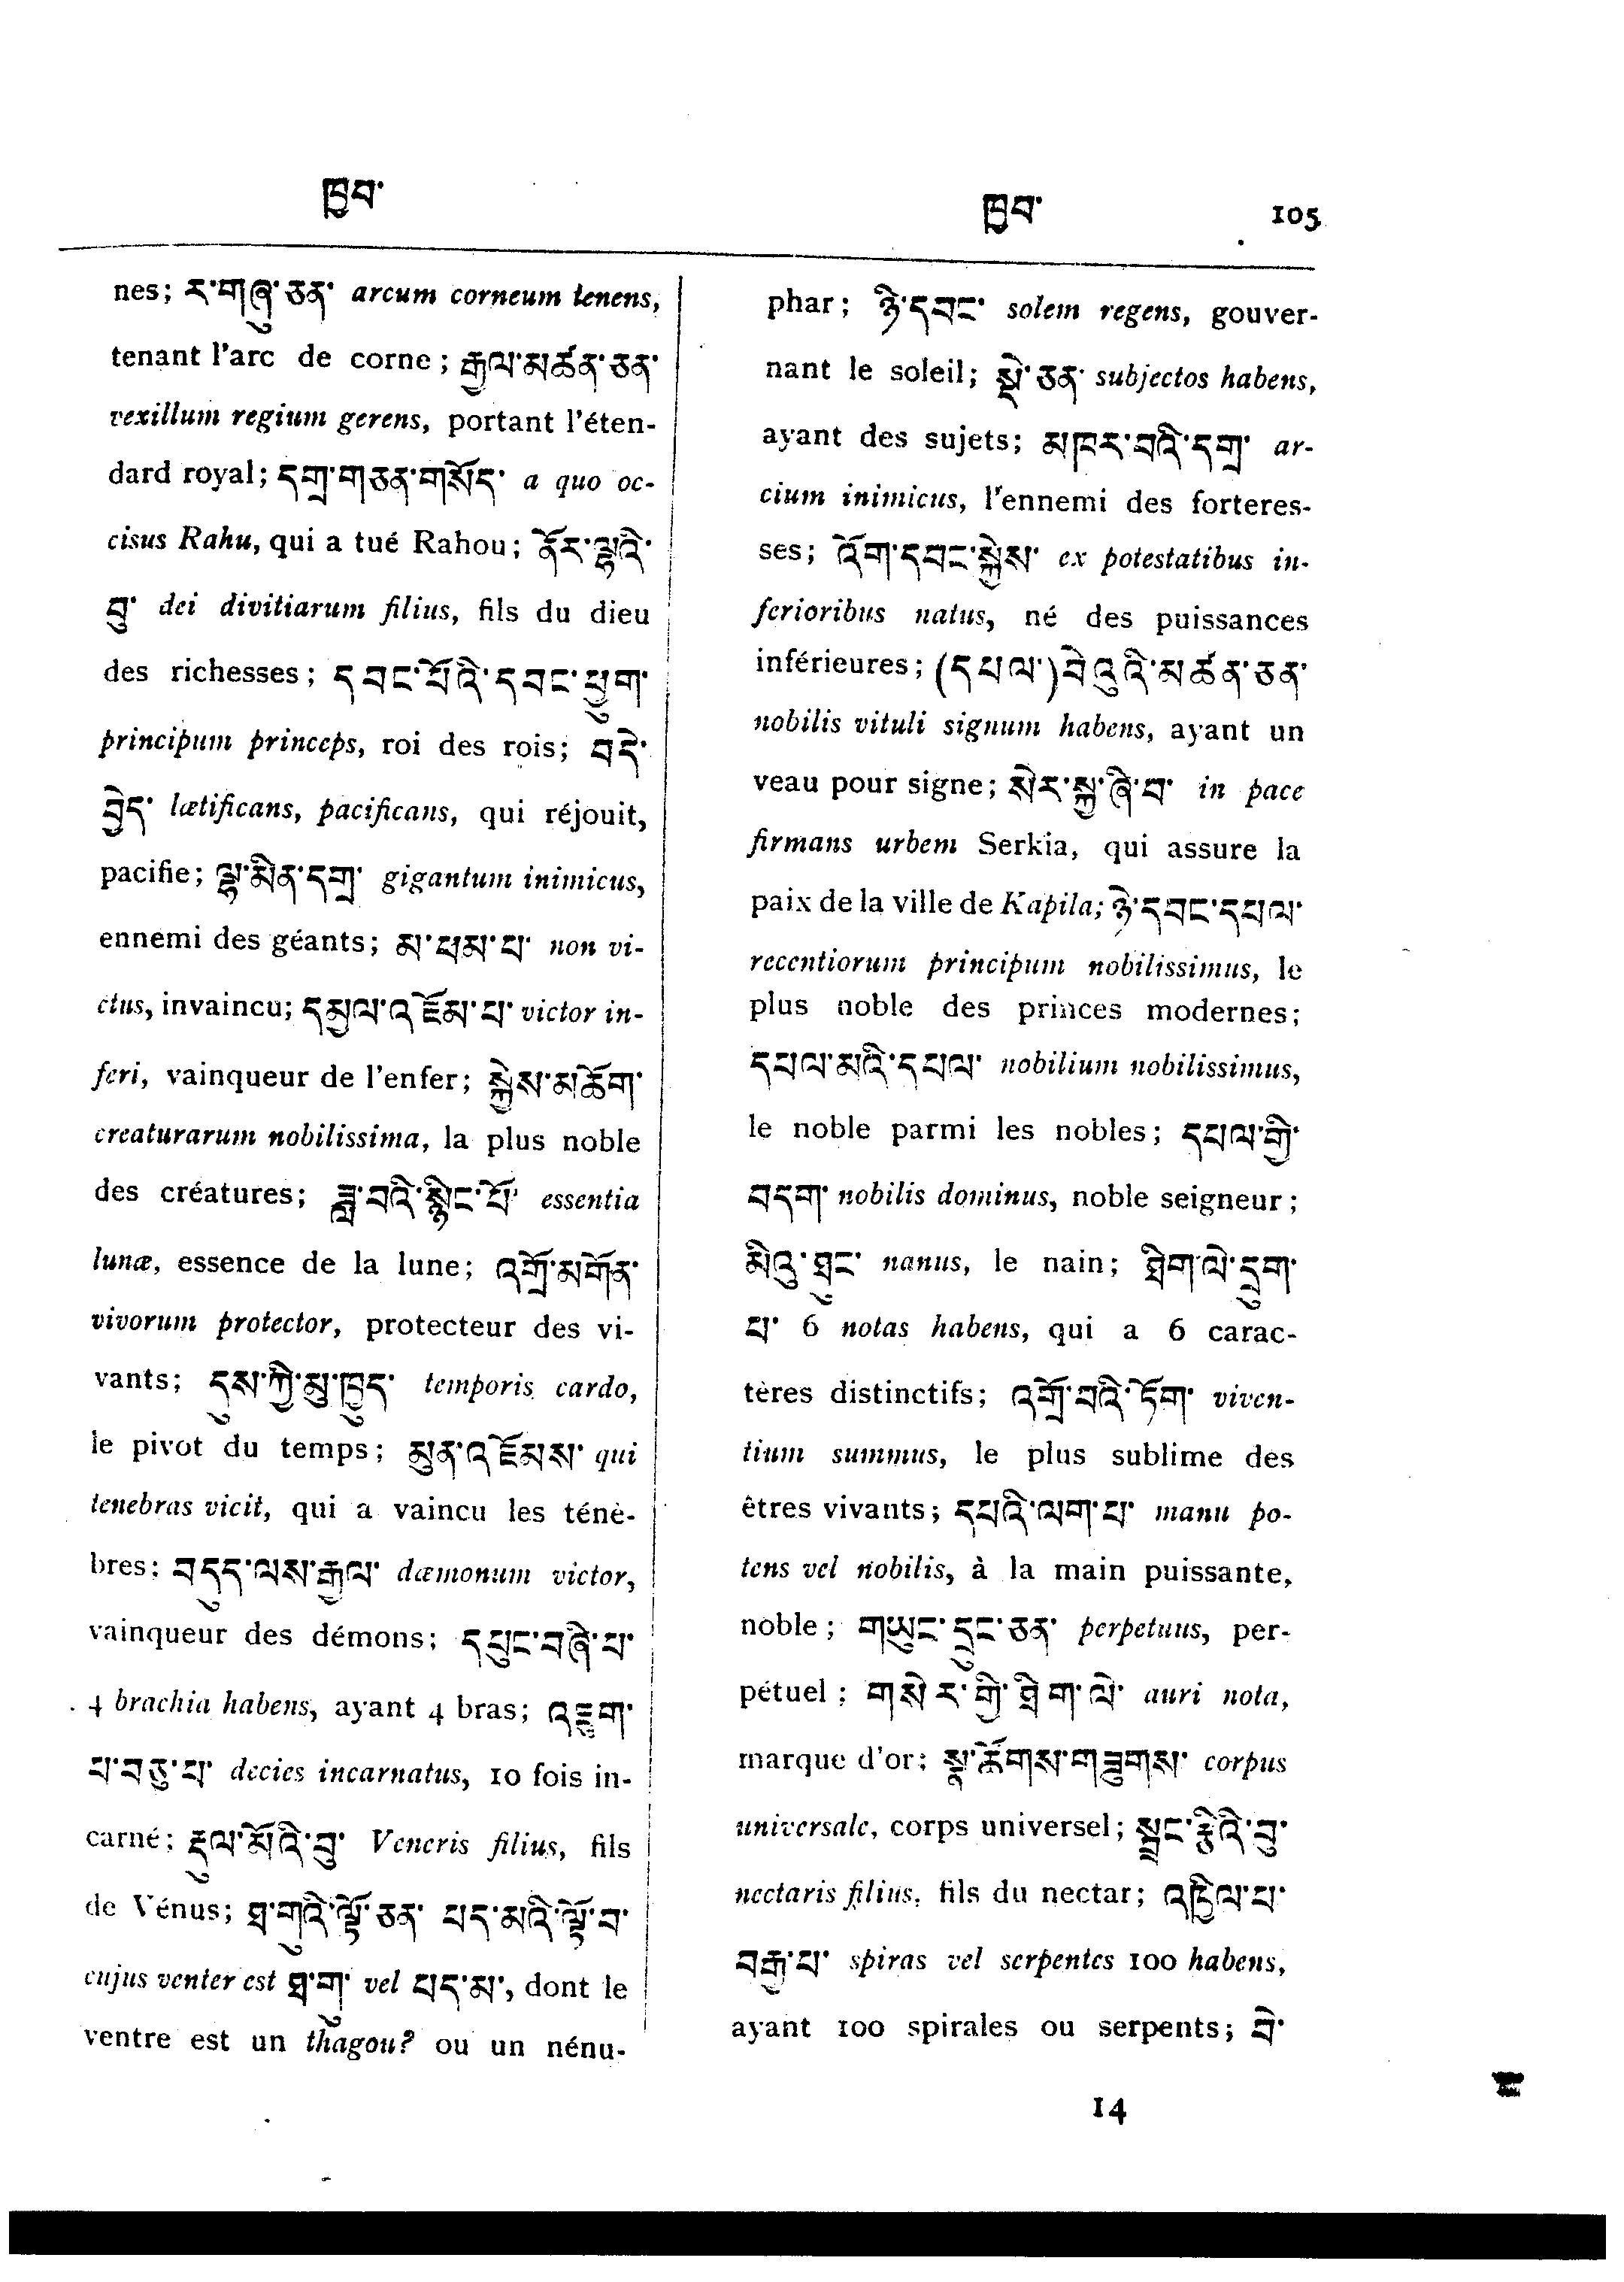 ཁྱབ་
ཁྱབ་ 105
nes; ར་གཞུ་ཅན་ arcum corneum tenens,
tenant l'arc de corne; རྒྱལ་མཚན་ཅན་
vexillum regium gerens, portant l'éten-
dard royal; དགྲ་གཅན་གསོད་ a quo oc-
cisus Rahu, qui a tué Rahou; ནོར་ལྷའི་
བུ་ dei divitiarum filius, fils du dieu
des richesses; དབང་པོའི་དབང་ཕྱུག་
principum princeps, roi des rois; བདེ་
བྱེད་ lætificans, pacificans, qui réjouit,
pacifie; ལྷ་མིན་དགྲ་ gigantum inimicus,
ennemi des géants; མ་ཕམ་པ་ non vi-
ctus, invaincu; དམྱལ་འཇོམ་པ་ victor in-
feri, vainqueur de l'enfer; སྐྱེས་མཆོག་
creaturarum nobilissima, la plus noble
des créatures; ཟླ་བའི་སྙིང་པོ་ essentia
lunæ, essence de la lune; འགྲོ་མགོན་
vivorum protector, protecteur des vi-
vants; དུས་ཀྱི་མུ་ཁྱུད་ temporis cardo,
le pivot du temps; མུན་འཇོམས་ qui
tenebras vicit, qui a vaincu les ténè-
bres; བདུད་ལས་རྒྱལ་ dæmonum victor,
vainqueur des démons; དཔུང་བཞི་པ་
4 brachia habens, ayant 4 bras; འཇུག་
པ་བཅུ་པ་ decies incarnatus, 10 fois in-
carné; རྡུལ་མོའི་བུ་ Veneris filius, fils
de Vénus; ཐ་གུའི་ལྟོ་ཅན་ པད་མའི་ལྟོ་བ་
cujus venter est ཐ་གུ་ vel པད་མ་, dont le
ventre est un thagou? ou un nénu-
phar; ཉེ་དབང་ solem regens, gouver-
nant le soleil; སྡེ་ཅན་ subjectos habens,
ayant des sujets; མཁར་བའི་དགྲ་ ar-
cium inimicus, l'ennemi des forteres-
ses; འོག་དབང་སྐྱེས་ ex potestatibus in-
ferioribus natus, né des puissances
inférieures; (དཔལ་)བེའུའི་མཚན་ཅན་
nobilis vituli signum habens, ayant un
veau pour signe; སེར་སྐྱ་ཞི་བ་ in pace
firmans urbem Serkia, qui assure la
paix de la ville de Kapila; ཉེ་དབང་དཔལ་
recentiorum principum nobilissimus, le
plus noble des princes modernes;
དཔལ་མའི་དཔལ་ nobilium nobilissimus,
le noble parmi les nobles; དཔལ་གྱི་
བདག་ nobilis dominus, noble seigneur;
མིའུ་ཐུང་ nanus, le nain; ཐིག་ལེ་དྲུག་
པ་ 6 notas habens, qui a 6 carac-
tères distinctifs; འགྲོ་བའི་ཏོག་ viven-
tium summus, le plus sublime des
êtres vivants; དཔའི་ལག་པ་ manu po-
tens vel nobilis, à la main puissante,
noble; གཡུང་དྲུང་ཅན་ perpetuus, per-
pétuel; གསེར་གྱི་ཐིག་ལེ་ auri nota,
marque d'or; སྣ་ཚོགས་གཟུགས་ corpus
universale, corps universel; སྦྲང་རྩིའི་བུ་
nectaris filius, fils du nectar; འཁྱིལ་པ་
བརྒྱ་པ་ spiras vel serpentes 100 habens,
ayant 100 spirales ou serpents; བེ་
14